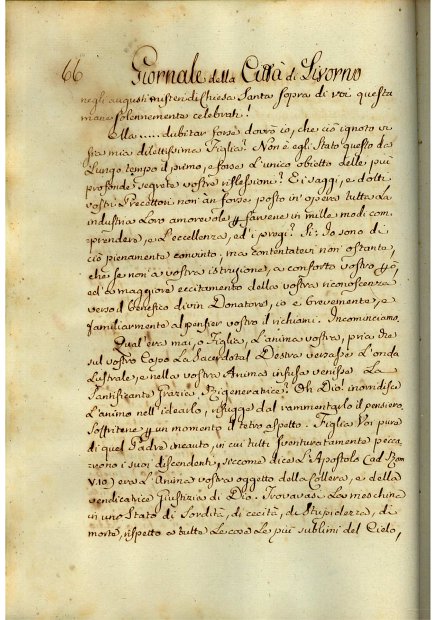 66 Giornale della Città di Livorno
negli augusti misteri di Chiesa Santa sopra di voi questa
mane solennemente celebrati!
Ma ..... dubitar forse dovrò io, che ciò ignoto vi
sia mia dilettissima Figlia? Non è egli stato questo da
lungo tempo il primo, e forse l'unico obietto delle più
profonde segrete vostre riflessioni? E i saggi, e dotti
vostri Precettori non àn forse posto in opera tutta la
industria loro amorevole p farvene in mille modi com-
prendere, e l'eccellenza, ed i pregi? Si: Io sono di
ciò pienamente convinto, ma contentatevi non ostante,
che se non a vostra istruzione, a conforto vostro p ò,
ed a maggiore eccitamento della vostra riconoscenza
verso il benefico divin Donatore, io e brevemente, e
familiarmente al pensier vostro il richiami. Incominciamo.
Qual'era mai, o Figlia, l'anima vostra, pria che
sul vostro Capo la Sacerdotal Destra versasse l'onda
lustrale, e nella vostra Anima infusa venisse la
Santificante Grazia Rigeneratrice? Oh Dio! inorridisce
l'animo nell'idearlo, rifugge dal rammentarlo il pensiero.
Soffritene p un momento il tetro aspetto. Figlia Voi pure
di quel Padre incauto, in cui tutti sventuratamente pecca-
rono i suoi discendenti, siccome dice l'Apostolo (ad Rom
V.10) era l'Anima vostra oggetto della Collera, e della
vendicatrice Giustizia di Dio. Trovavasi la meschina
in uno Stato di Sordità, di cecità, di Stupidezza, di
morte, rispetto a tutte le cose le più sublimi del Cielo,